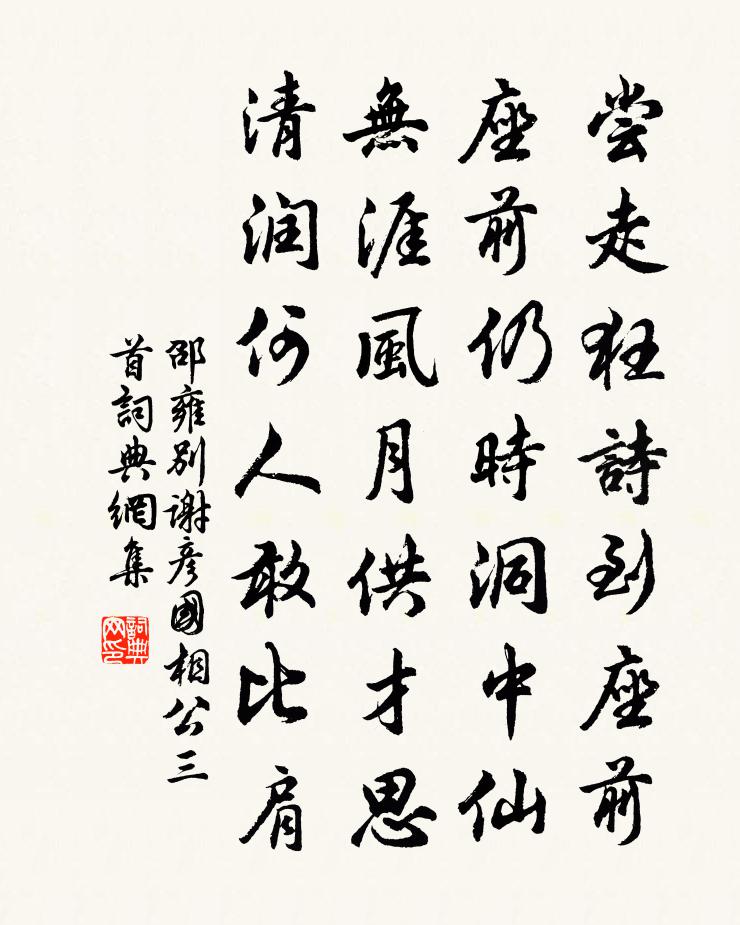 尝走狂詩到座前
座前仍時洞中仙
無涯風月供才思
清润何人敢比肩
邵雍别謝彦國相公三
首詞典網集
詞典
网印